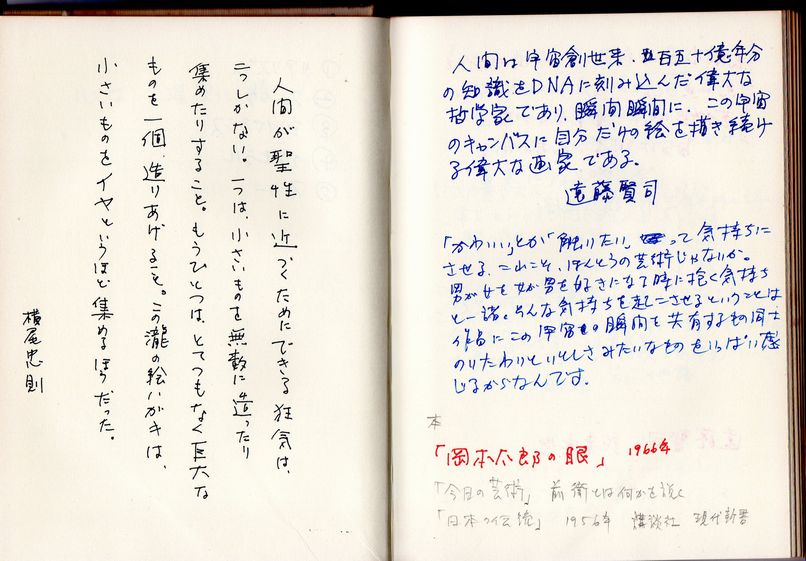 人間が聖性に近づくためにできる狂気は、
二つしかない。一つは、小さいものを無数に造ったり
集めたりすること。もうひとつは、とてつもなく巨大な
ものを一個、造りあげること。この瀧の絵いがきは、
小さいものをイヤというほど集めるほうだった。
横尾忠則
人間は宇宙創世来、五百五十億年分
の知識をDNAに刻み込んだ偉大な
哲学家であり、瞬間瞬間に、この宇宙
のキャンバスに自分だけの絵を描き続け
る偉大な画家である。
遠藤賢司
「かわいい」とか「触りたい」って気持ちに
させる、これこそ、ほんとうの芸術じゃないか。
男が女を女が男を好きになって時に抱く気持ち
と一緒。そんな気持ちを起こさせるということは
作品にこの宇宙の瞬間を共有するもの同士
のいたわりといとしさみたいなものをいっぱい感
じるからなんです。
本
「岡本太郎の眼」 1966年
「今日の芸術」 前衛とは何かを説く
「日本の伝統」 1956年 講談社 現代新書